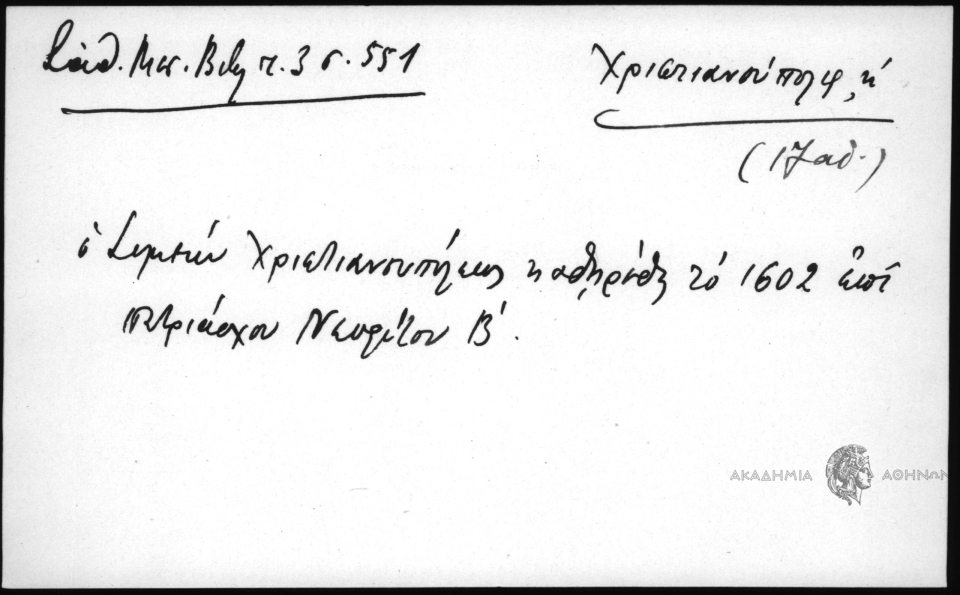 Σάθ. Μεσ. Βιβ. τ. 3 σ. 551
Χριστιανούπολις, ἡ
(17 αἰ.)
ὁ Χριστιανουπόλεως καθῃρέθη τὸ 1602 ἐπὶ
πατριάρχου Νεοφύτου Β΄.
ΑΚΑΔΗΜΙΑ ΑΘΗΝΩΝ